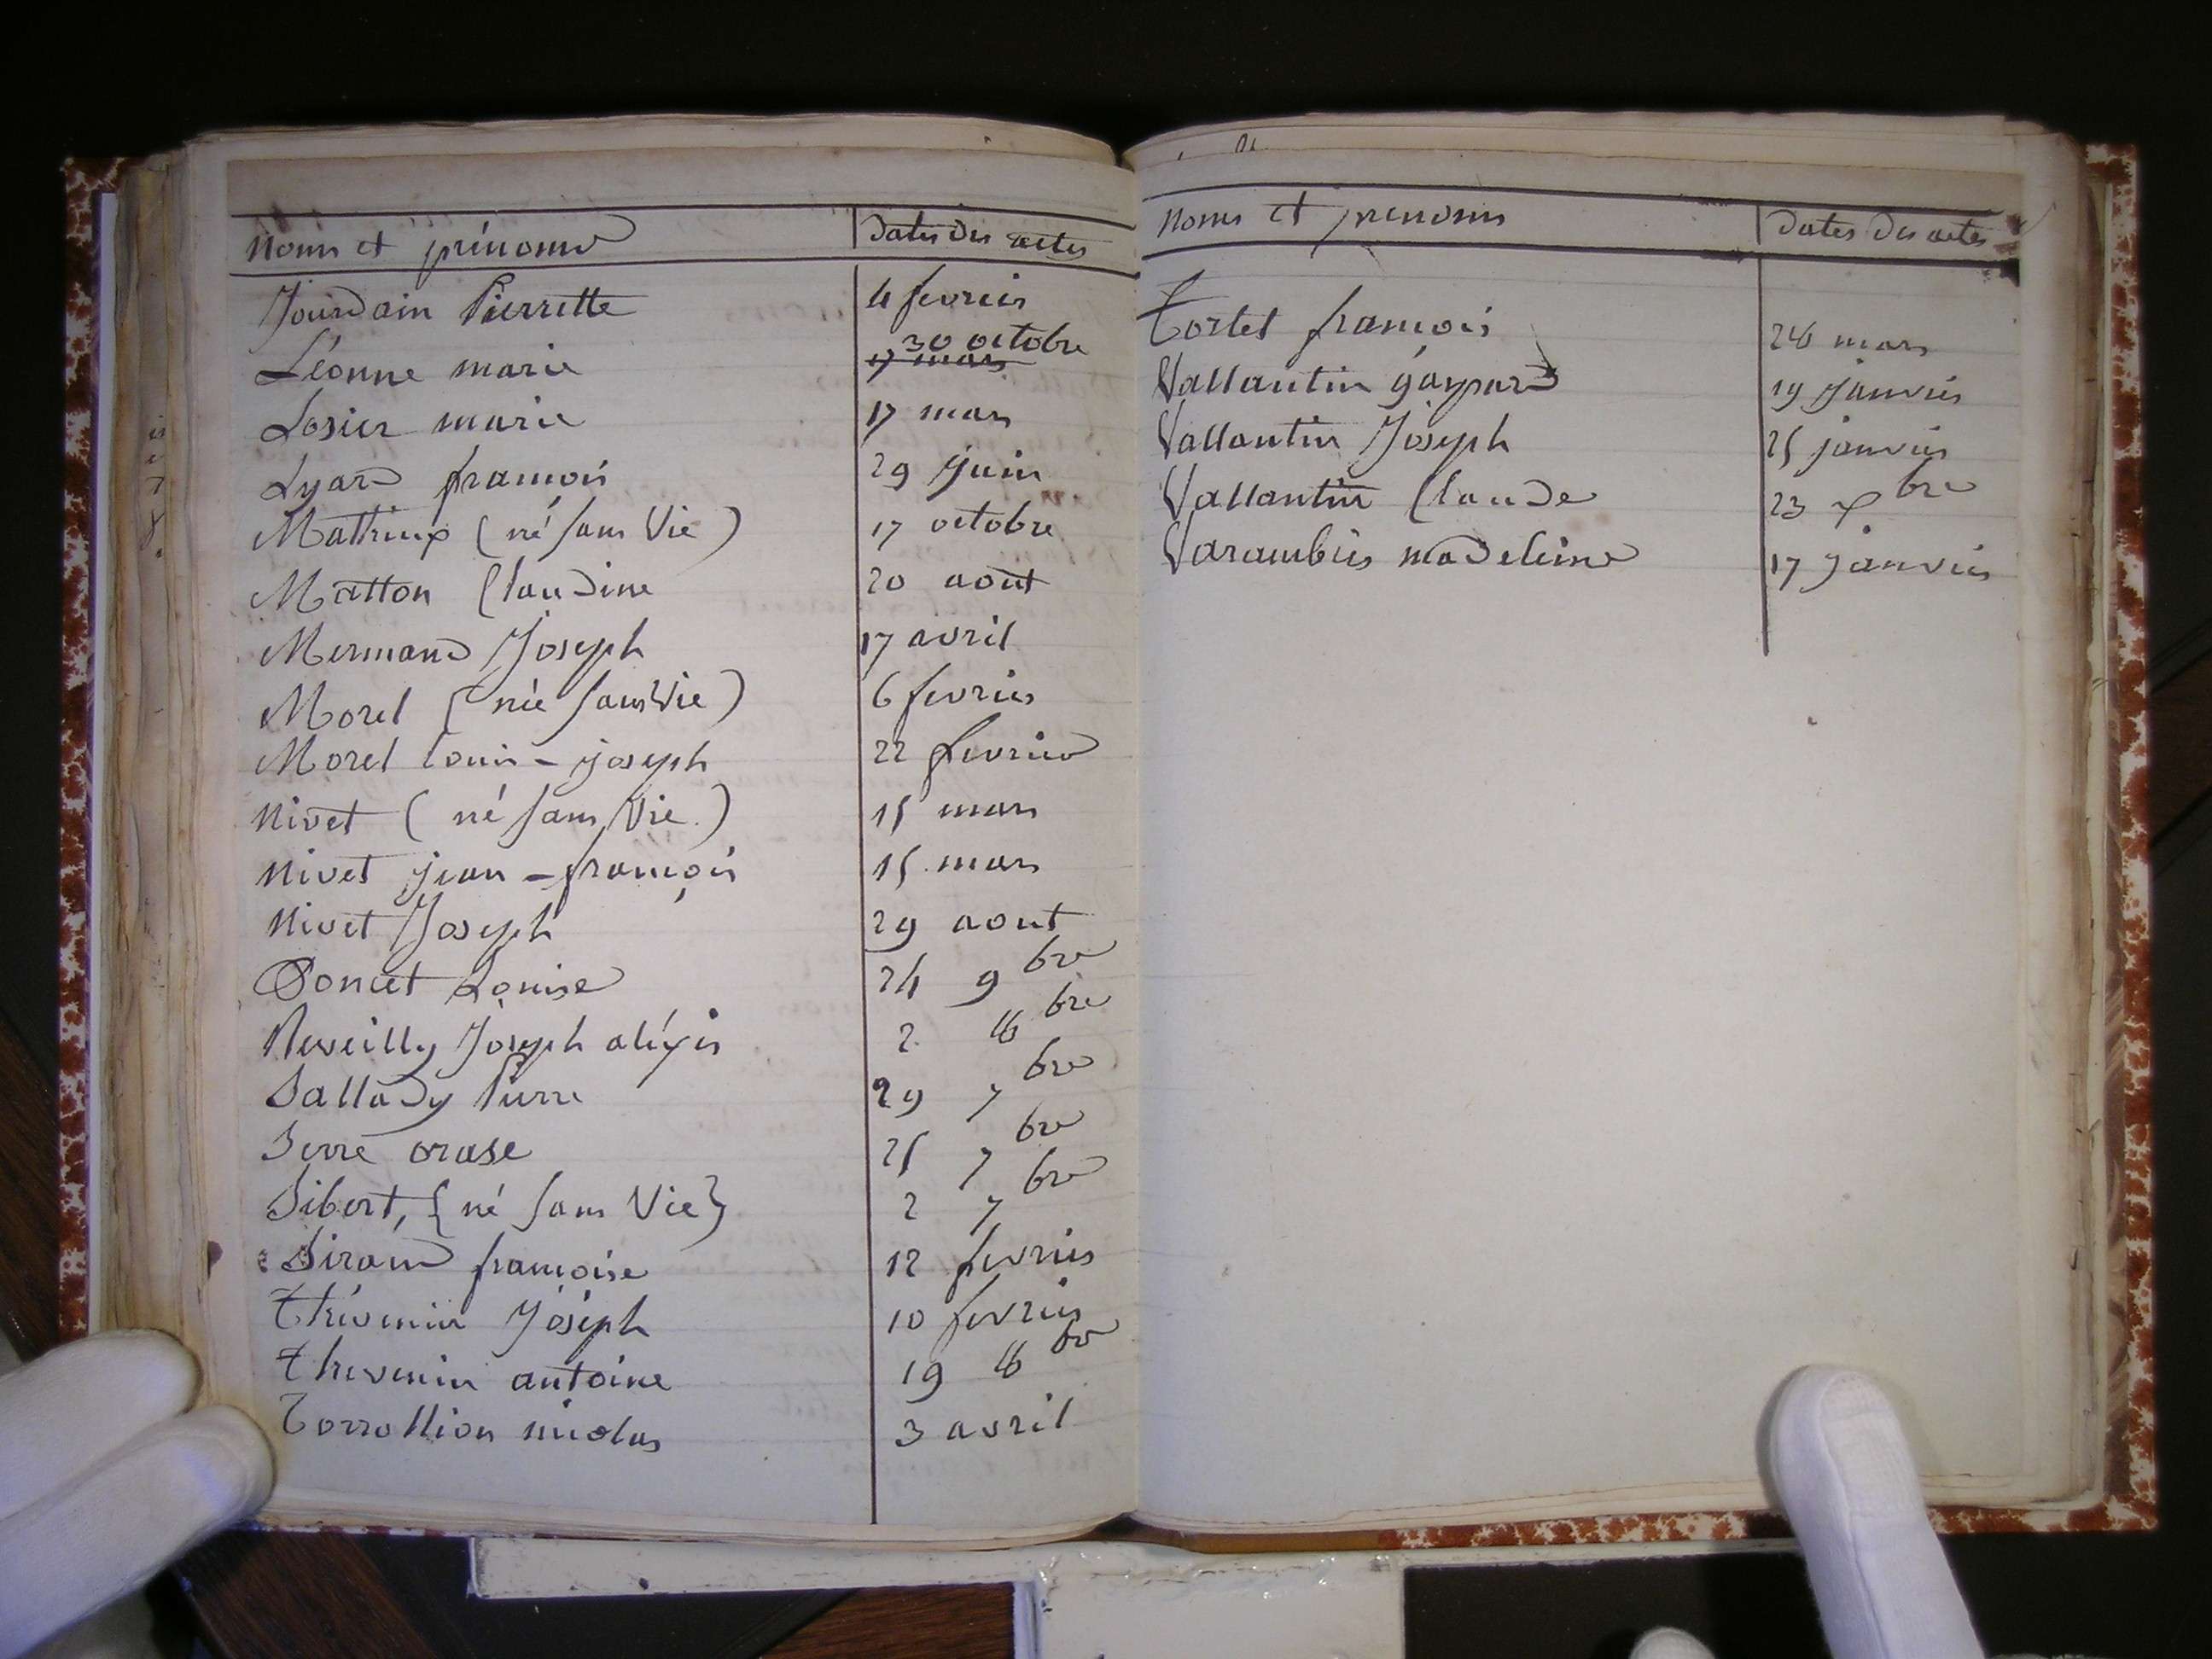 Noms et prénoms Dates des actes
Jourdain Pierrette 4 fevrier
Léonne marie 17 mars 30 octobre
Losier marie 17 mars
Lyard francois 29 juin
Mathieux (né sans vie) 17 octobre
Matton Claudine 20 aout
Mermand Joseph 17 avril
Morel (née sans vie) 6 fevrier
Morel louis - joseph 22 fevrier
Nivet (né sans vie.) 15 mars
Nivet jean - françois 15 mars
Nivet Joseph 29 aout
Poncet Louise 24 9bre
Reveilly Joseph aléxis 2 8bre
Sallady Pierre 29 7bre
Serre orase 25 7bre
Sibert, {né sans Vie} 2 7bre
Siraud françoise 12 fevrier
Thévenin Joseph 10 fevrier
thevenin antoine 19 8bre
Torrollion nicolas 3 avril
Noms et prenoms Dates des actes
Tortet francois 28 mars
Vallantin gaspard 19 Janvier
Vallantin Joseph 25 janvier
Vallantin Claude 23 xbre
Varambier madeleine 17 janvier